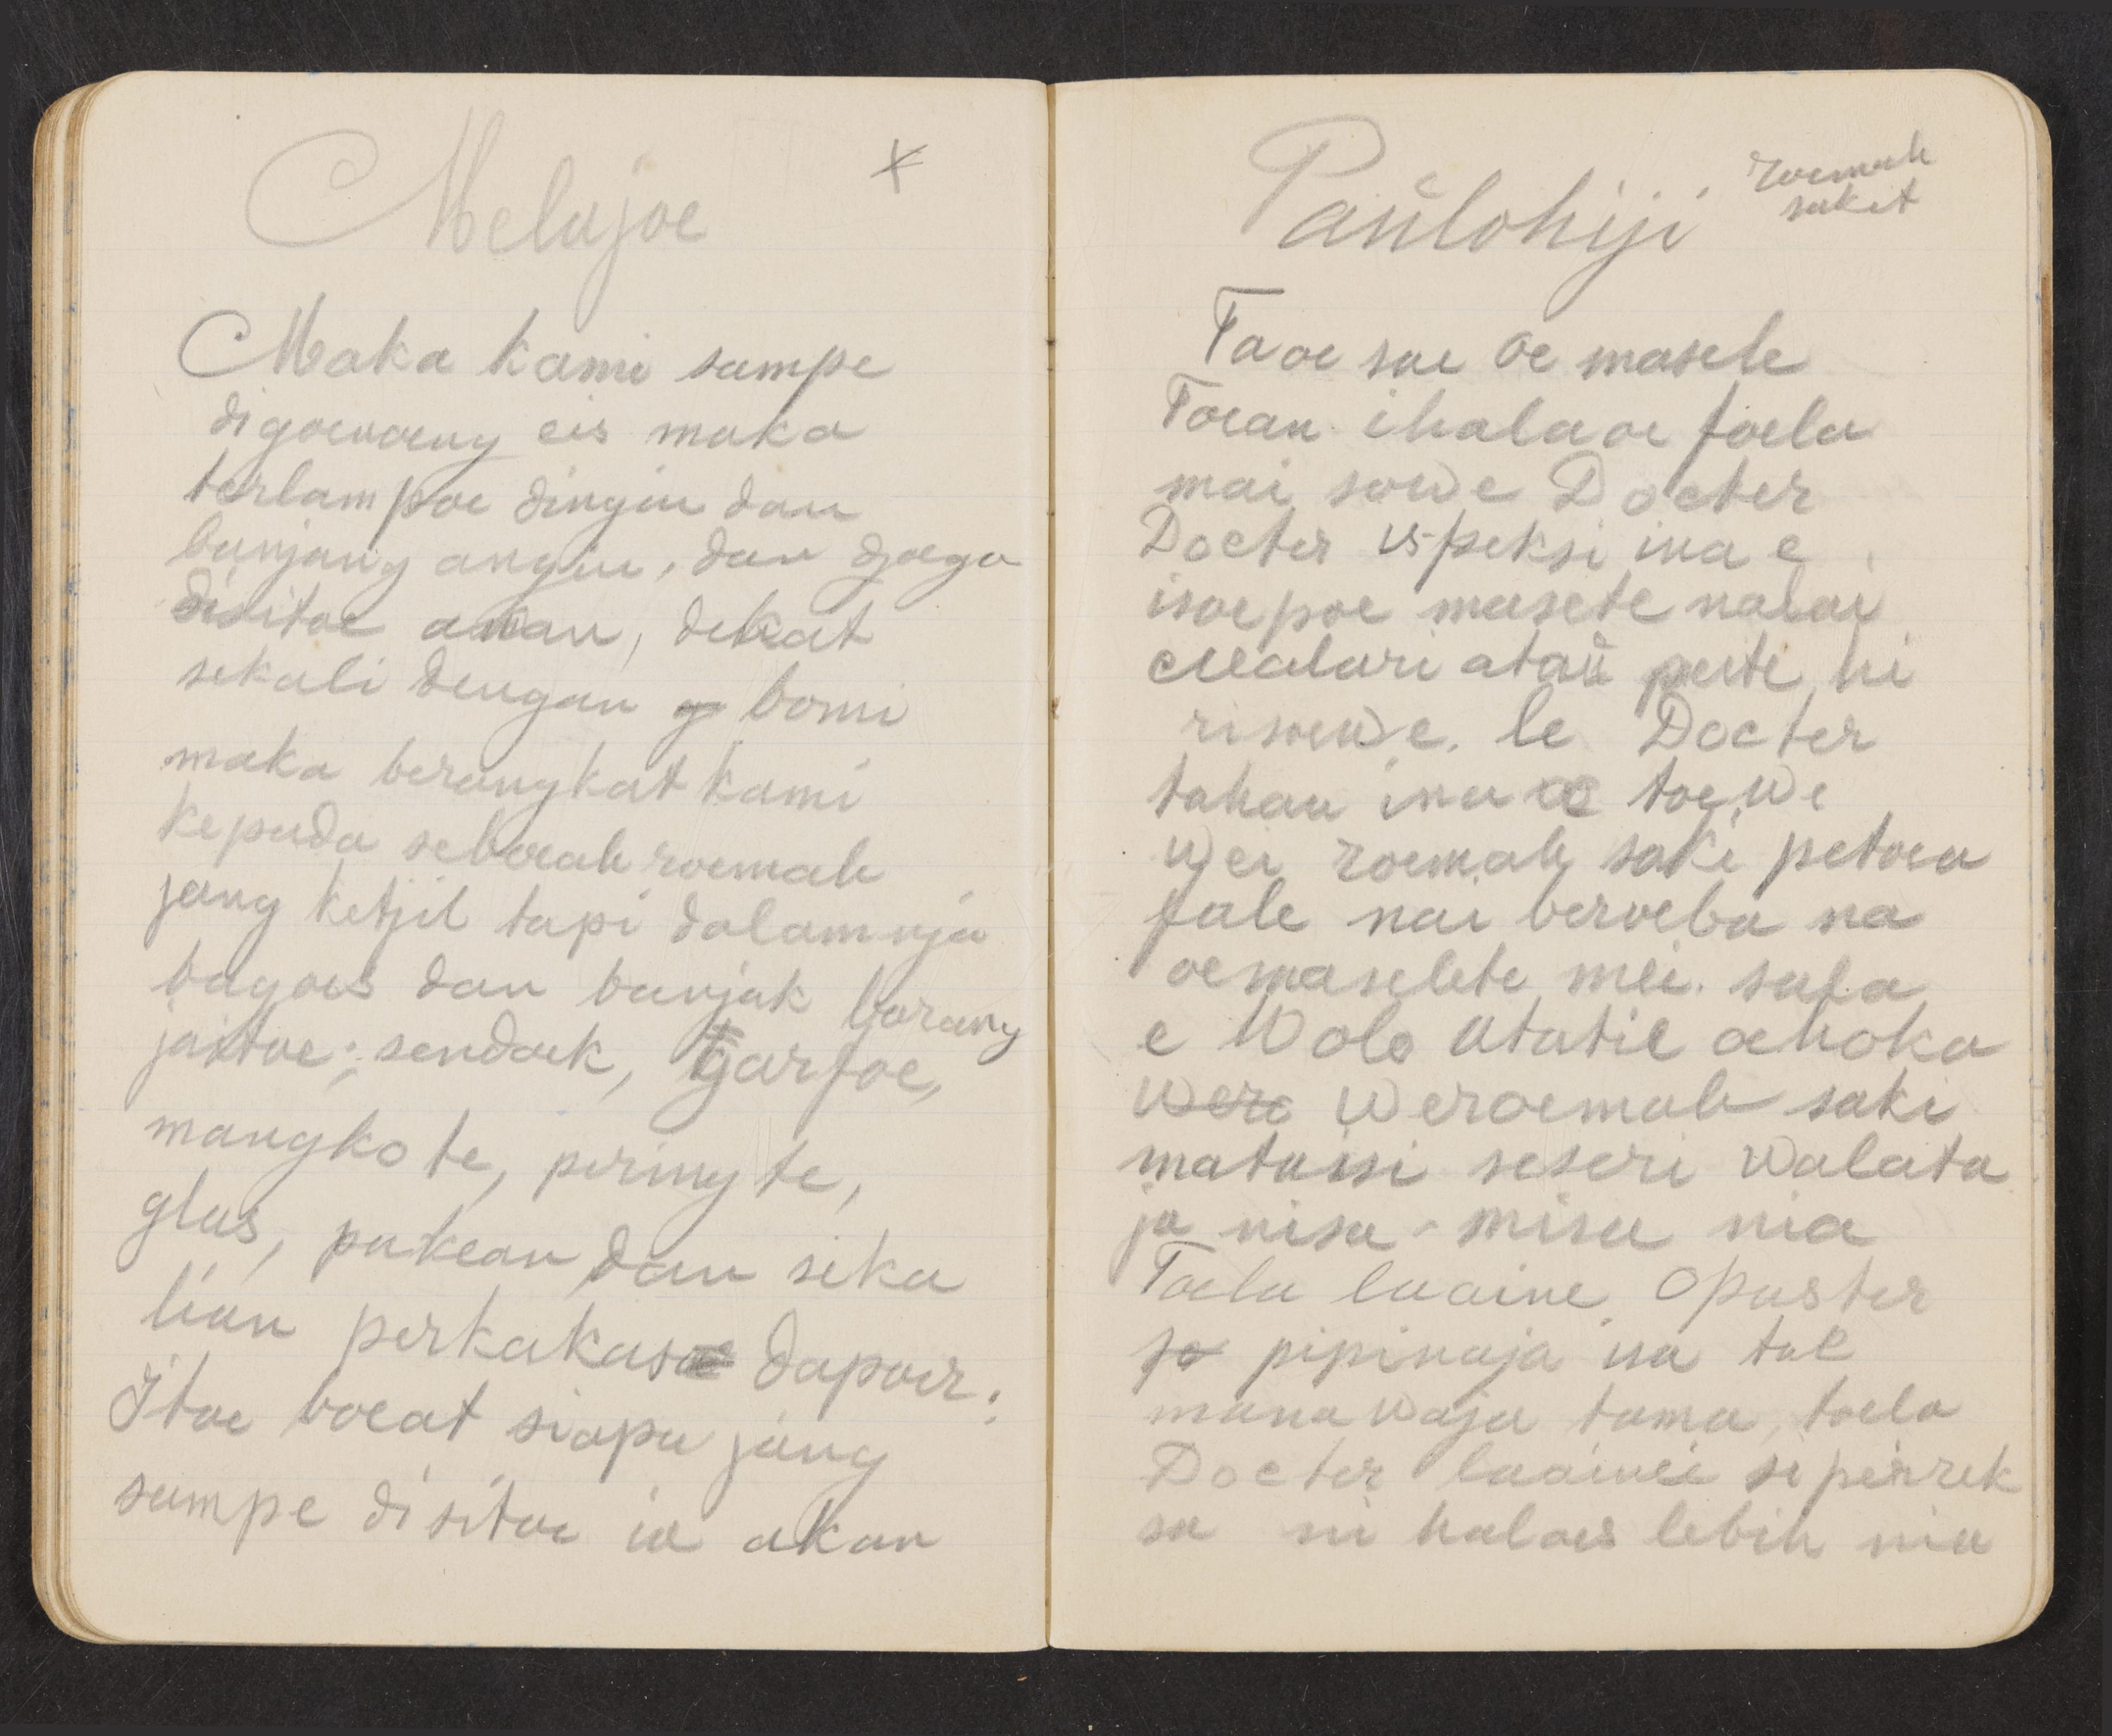 Melajoe
x
Maka kami sampe
digoenoeng eis maka
terlampoe dingin dan
banjang angin, dan djoega
disitoe awan, dekat
sekali dengan bomi
maka berangkat kami
kepada seboeah roemah
jang ketjil tapi dalamnja
bagoes dan banjak barang
jaitoe; sendok, garfoe,
mangko te, piring te,
glas, pakean dan seka
lian perkakas dapoer:
Itoe boeat siapa jang
sampe disitoe ia akan
Paŭlohiji
roemah
sakit
Taoe sae oe masele
Toean ihalaoe foela
mai sowe Docter
Docter ispeksi ina e
isoepoe masete naeai
ataŭ peste hi
risoewe. le Docter
tahan ina oe toewe
wei roemah saki petoea
fale nai beroeba na
oemaselete mei. sala
e Wolo Atatie oehoka
were weroemah saki
matuisi seseri walata
ja nisa-misa nia
Toela laaine Opaster
pipinaja na tae
mana waja tama, toela
Docter laainei si perrek
sa ni haloes lebih nia